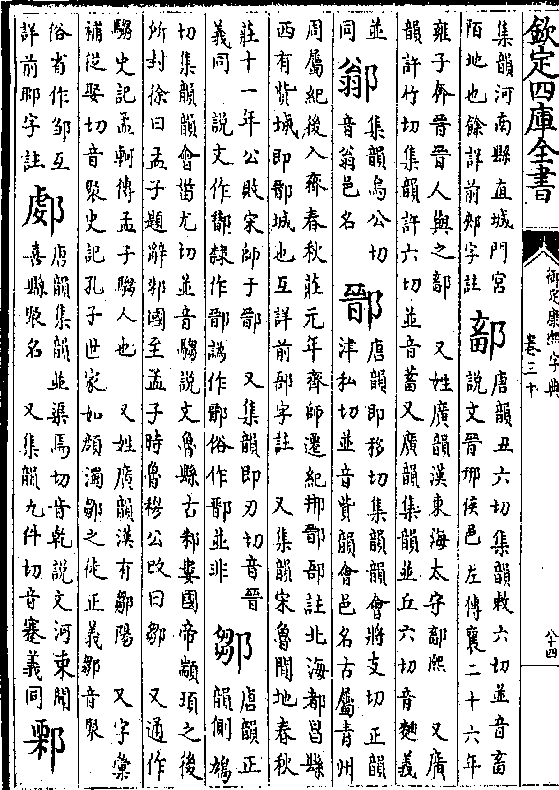 欽定四庫全書
御定康熙字典
卷三十
八十四
集韻河南縣直城門宮
陌地也餘詳前郟字註
鄐
唐韻丑六切集韻敕六切並音畜
説文晉邢侯邑 左傳襄二十六年
雍子奔晉晉人與之鄐 又姓廣韻漢東海太守鄐熙 又廣
韻許竹切集韻許六切並音蓄又廣韻集韻並丘六切音麴義
並
同
集韻烏公切
音翁邑名
鄑
唐韻即移切集韻韻會將支切正韻
津私切並音貲韻會邑名古屬青州
周屬紀後入齊春秋莊元年齊師遷紀郱鄑郚註北海都昌縣
西有貲城即鄑城也互詳前郚字註 又集韻宋魯間地春秋
莊十一年公敗宋師于鄑 又集韻即刃切音晉
義同 説文作隸作鄑譌作俗作並非
鄒
唐韻正
韻側鳩
切集韻韻會甾尤切並音騶説文魯縣古邾婁國帝顓頊之後
所封徐曰孟子題辭邾國至孟子時魯穆公改曰鄒 又通作
騶史記孟軻傳孟子騶人也 又姓廣韻漢有鄒陽 又字彙
補從娶切音聚史記孔子世家如顔濁鄒之徒正義鄒音聚
俗省作邹互
詳前郰字註
唐韻集韻並渠焉切音乾説文河東聞
喜縣聚名 又集韻九件切音蹇義同